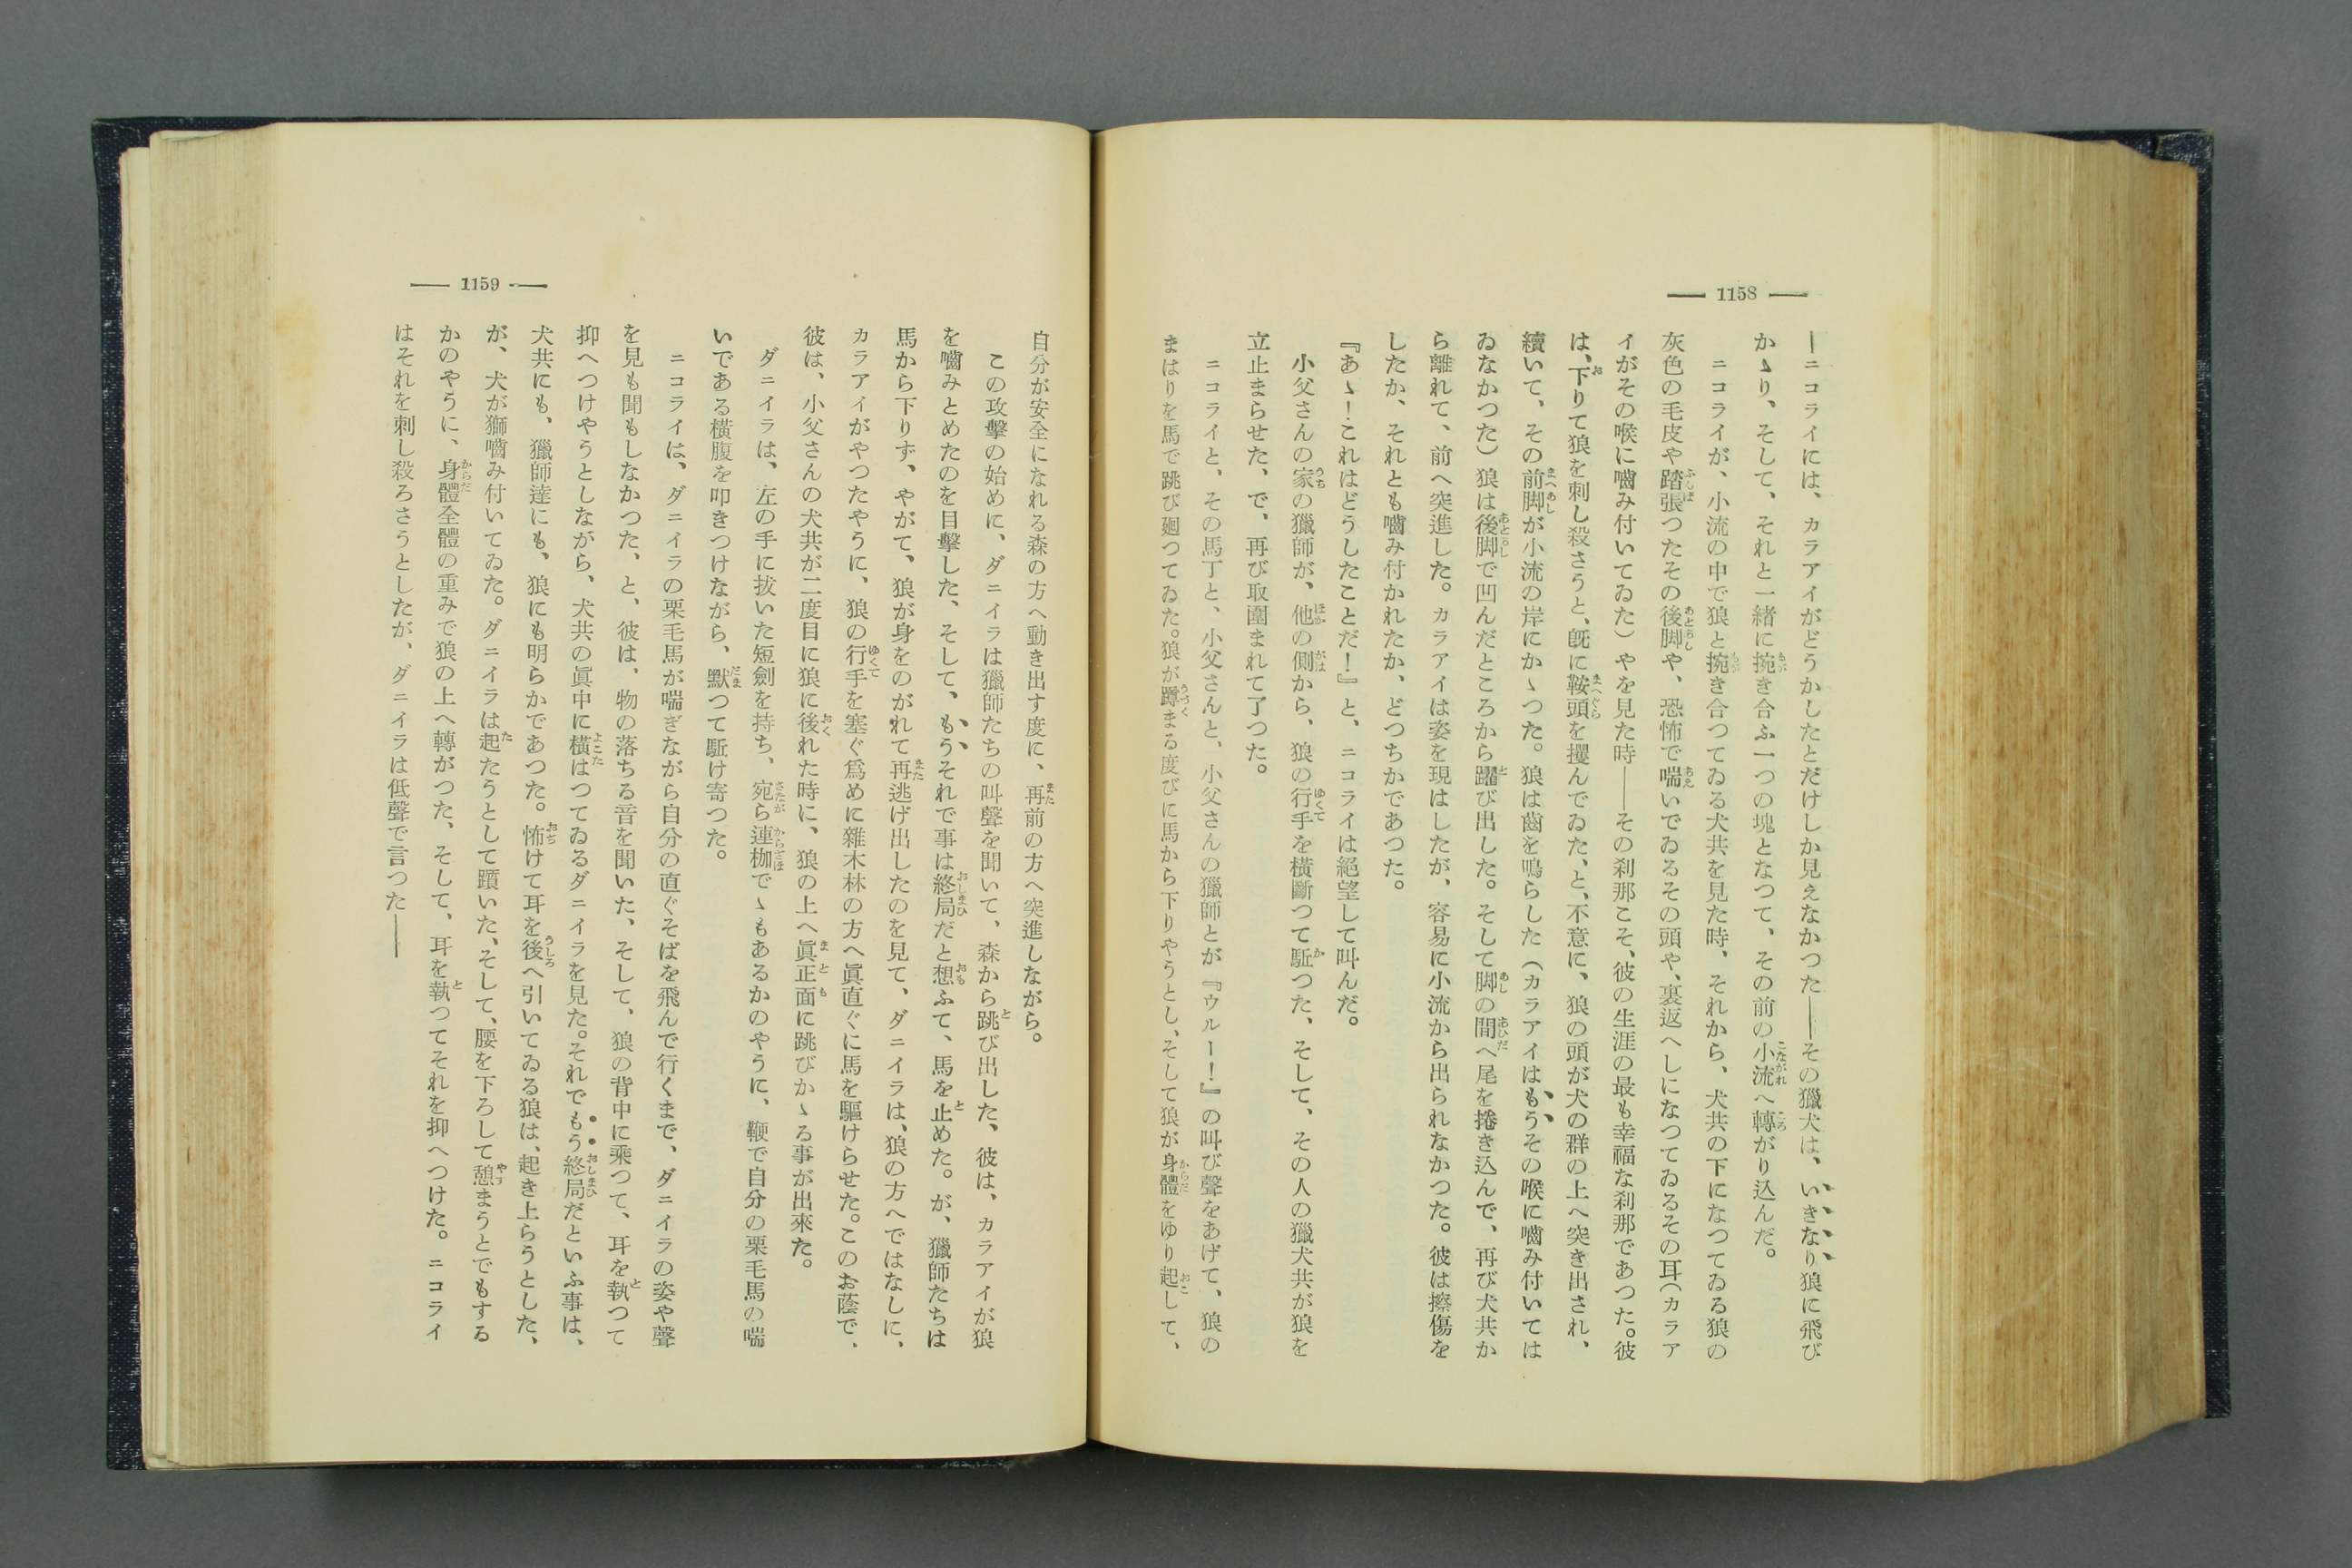 — 1158 —
―ニコライには、カラアイがどうかしたとだけしか見えなかつた――その獵犬は、いきなり狼に飛び
かゝり、そして、それと一緒に揑き合ふ一つの塊となつて、その前の小流へ轉がり込んだ。
ニコライが、小流の中で狼と揑き合つてゐる犬共を見た時、それから、犬共の下になつてゐる狼の
灰色の毛皮や踏張つたその後脚や、恐怖で喘いでゐるその頭や、裏返へしになつてゐるその耳(カラア
イがその喉に嚙み付いてゐた)やを見た時――その刹那こそ、彼の生涯の最も幸福な刹那であつた。彼
は、下りて狼を刺し殺さうと、既に鞍頭を攫んでゐた、と、不意に、狼の頭が犬の群の上へ突き出され、
續いて、その前脚が小流の岸にかゝつた。狼は齒を鳴らした(カラアイはもうその喉に嚙み付いては
ゐなかつた)狼は後脚で凹んだところから躍び出した。そして脚の間へ尾を捲き込んで、再び犬共か
ら離れて、前へ突進した。カラアイは姿を現はしたが、容易に小流から出られなかつた。彼は擦傷を
したか、それとも嚙み付かれたか、どつちかであつた。
『あゝ!これはどうしたことだ!』と、ニコライは絶望して叫んだ。
小父さんの家の獵師が、他の側から、狼の行手を橫斷つて駈つた、そして、その人の獵犬共が狼を
立止まらせた、で、再び取圍まれて了つた。
ニコライと、その馬丁と、小父さんと、小父さんの獵師とが『ウルー!』の叫び聲をあげて、狼の
まはりを馬で跳び廻つてゐた。狼が蹲まる度びに馬から下りやうとし、そして狼が身體をゆり起して、
— 1159 —
自分が安全になれる森の方へ動き出す度に、再前の方へ突進しながら。
この攻擊の始めに、ダニイラは獵師たちの叫聲を聞いて、森から跳び出した、彼は、カラアイが狼
を嚙みとめたのを目擊した、そして、もうそれで事は終局だと想ふて、馬を止めた。が、獵師たちは
馬から下りず、やがて、狼が身をのがれて再逃げ出したのを見て、ダニイラは、狼の方へではなしに、
カラアイがやつたやうに、狼の行手を塞ぐ爲めに雜木林の方へ眞直ぐに馬を驅けらせた。このお蔭で、
彼は、小父さんの犬共が二度目に狼に後れた時に、狼の上へ眞正面に跳びかゝる事が出來た。
ダニイラは、左の手に拔いた短劍を持ち、宛ら連枷でゝもあるかのやうに、鞭で自分の栗毛馬の喘
いである橫腹を叩きつけながら、默つて駈け寄つた。
ニコライは、ダニイラの栗毛馬が喘ぎながら自分の直ぐそばを飛んで行くまで、ダニイラの姿や聲
を見も聞もしなかつた、と、彼は、物の落ちる音を聞いた、そして、狼の背中に乘つて、耳を執つて
抑へつけやうとしながら、犬共の眞中に橫はつてゐるダニイラを見た。それでもう終局だといふ事は、
犬共にも、獵師達にも、狼にも明らかであつた。怖けて耳を後へ引いてゐる狼は、起き上らうとした、
が、犬が獅嚙み付いてゐた。ダニイラは起たうとして躓いた、そして、腰を下ろして憩まうとでもする
かのやうに、身體全體の重みで狼の上へ轉がつた、そして、耳を執つてそれを抑へつけた。ニコライ
はそれを刺し殺ろさうとしたが、ダニイラは低聲で言つた――